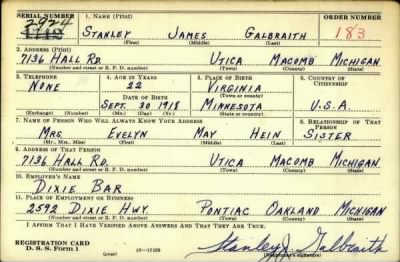 SERIAL NUMBER 1. NAME (Print) ORDER NUMBER
2924
1718 STANLEY JAMES GALBRAITH 183
(First) (Middle) (Last)
2. ADDRESS (Print)
7136 HALL RD. UTICA MACOMB MICHIGAN
(Number and street or R. F. D. number) (Town) (County) (State)
3. TELEPHONE 4. AGE IN YEARS 5. PLACE OF BIRTH 6. COUNTRY OF CITIZENSHIP
NONE 22 VIRGINIA
DATE OF BIRTH (Town or county)
SEPT. 30 1918 MINNESOTA U.S.A.
(Exchange) (Number) (Mo.) (Day) (Yr.) (State or country)
7. NAME OF PERSON WHO WILL ALWAYS KNOW YOUR ADDRESS 8. RELATIONSHIP OF THAT PERSON
MRS. EVELYN MAY HEIN SISTER
(Mr., Mrs., Miss) (First) (Middle) (Last)
9. ADDRESS OF THAT PERSON
7136 HALL RD. UTICA MACOMB MICHIGAN
(Number and street or R. F. D. number) (Town) (County) (State)
10. EMPLOYER'S NAME
DIXIE BAR
11. PLACE OF EMPLOYMENT OR BUSINESS
2592 DIXIE HWY PONTIAC OAKLAND MICHIGAN
(Number and street or R. F. D. number) (Town) (County) (State)
I AFFIRM THAT I HAVE VERIFIED ABOVE ANSWERS AND THAT THEY ARE TRUE.
REGISTRATION CARD
D. S. S. Form 1 (over) Stanley J. Galbraith
(Registrant's signature)